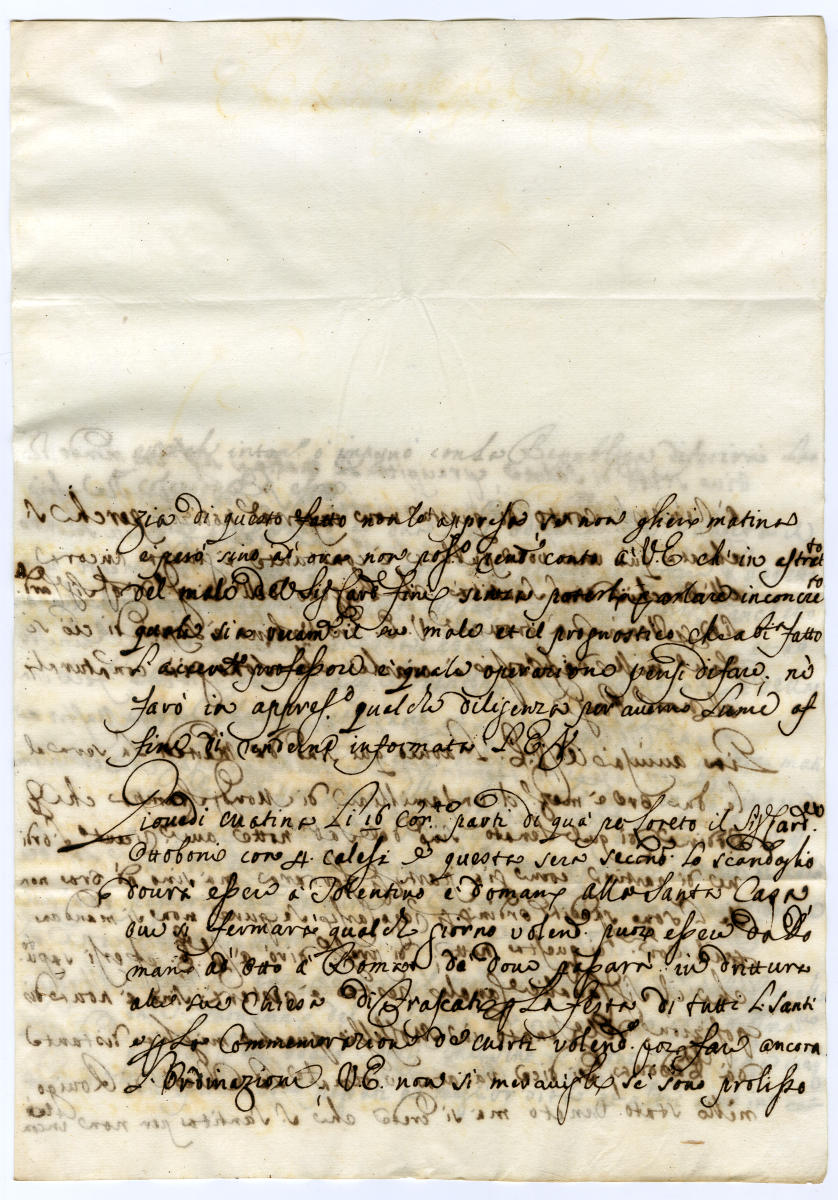 zia di questo fatto non lo appresa se non gheri matina
e però sino ad ora non poss.o rend.o conto a V.E. ch'in astrat.to
del male del Sig.r Card.e senza poterli parlare in concre.to
quale sia il suo male et il prognostico che abi fatto
professore e quale operazione pensi di fare, nè
farò in appres.o qualche diligenza per averne Lume af
fine di renderne informata L.E.V.
Giovedi matina Li 16 Cor.te parti di quà per Loreto il Sig.r Card.e
Ottoboni con 4 calessi e questa sera second.o lo scandaglio
dourà essere a Tolentino e domani alla Santa Casa
ove si fermarà qualche giorno volend.o poi essere da Do
mani ad otto a Roma de dove passarà in drittura
alla sua Chiesa di Frascati p La festa di tutti Li Santi
e p La Commemorazione de morti volend.o poi fare ancora
L'Ordinazione, V.E. non si meravigli se sono prolisso